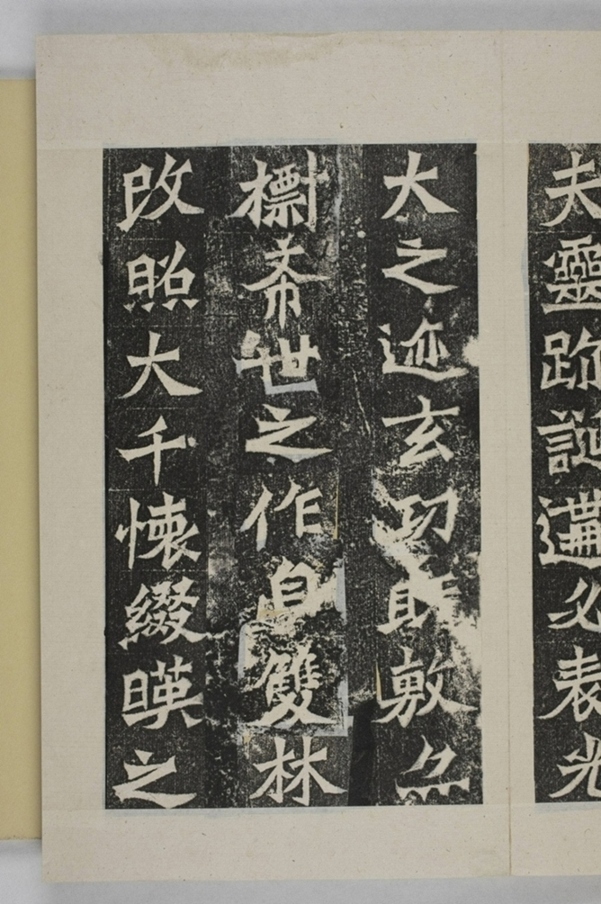 夫靈跡誕遘必表光
大之迹玄功既敷亦
標希世之作自雙林
改照大千懷綴暎之